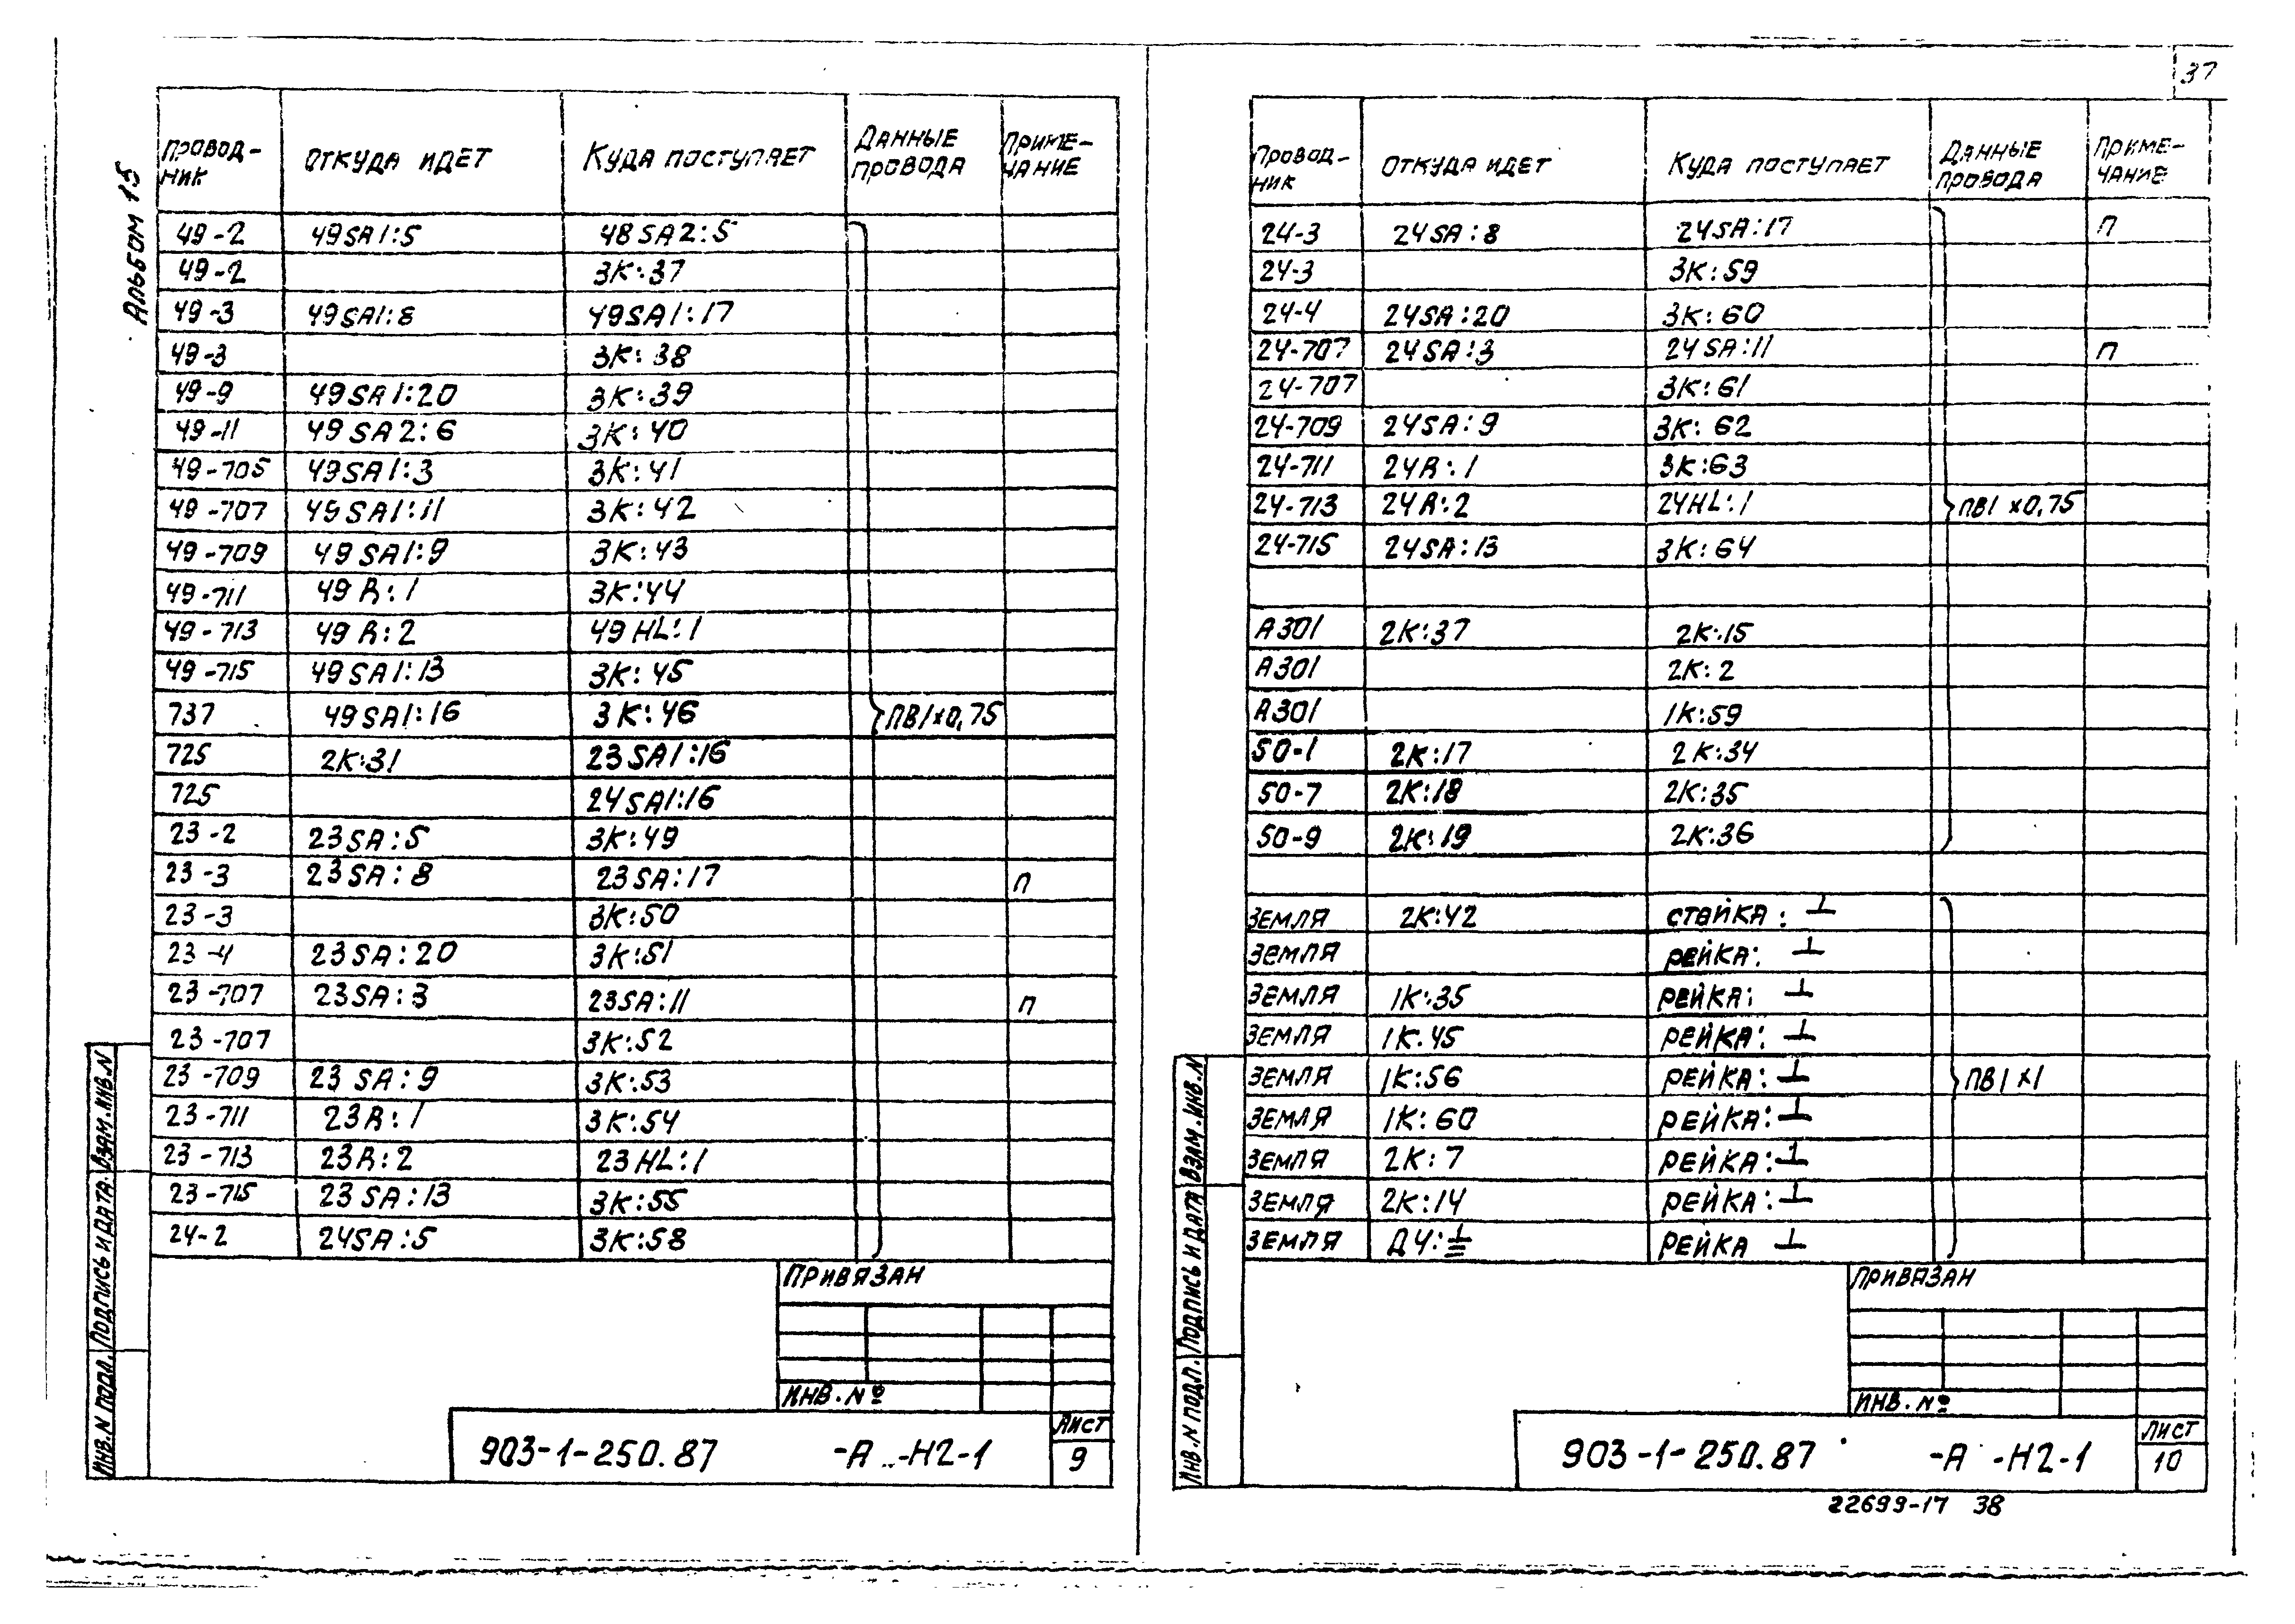 37
Альбом 15
Провод-ник Откуда идет Куда поступает Данные провода Приме-чание
49-2 49SA1:5 48SA2:5
49-2 3К:37
49-3 49SA1:8 49SA1:17
49-3 3К:38
49-9 49SA1:20 3К:39
49-11 49SA2:6 3К:40
49-705 49SA1:3 3К:41
49-707 49SA1:11 3К:42
49-709 49SA1:9 3К:43
49-711 49R:1 3К:44
49-713 49R:2 49HL:1
49-715 49SA1:13 3К:45
737 49SA1:16 3К:46 ПВ1х0,75
725 2К:31 23SA1:16
725 24SA1:16
23-2 23SA:5 3К:49
23-3 23SA:8 23SA:17 П
23-3 3К:50
23-4 23SA:20 3К:51
23-707 23SA:3 23SA:11 П
23-707 3К:52
23-709 23SA:9 3К:53
23-711 23R:1 3К:54
23-713 23R:2 23HL:1
23-715 23SA:13 3К:55
24-2 24SA:5 3К:58
Привязан
Инв. №
Инв. N подл. Подпись и дата Взам. инв. N
903-1-250.87 -А -Н2-1
Лист
9
Провод-ник Откуда идет Куда поступает Данные провода Приме-чание
24-3 24SA:8 24SA:17 П
24-3 3К:59
24-4 24SA:20 3К:60
24-707 24SA:3 24SA:11 П
24-707 3К:61
24-709 24SA:9 3К:62
24-711 24R:1 3К:63
24-713 24R:2 24HL:1 ПВ1 х0,75
24-715 24SA:13 3К:64
А301 2К:37 2К:15
А301 2К:2
А301 1К:59
50-1 2К:17 2К:34
50-7 2К:18 2К:35
50-9 2К:19 2К:36
Земля 2К:42 стойка: ⊥
Земля рейка: ⊥
Земля 1К:35 рейка: ⊥
Земля 1К:45 рейка: ⊥
Земля 1К:56 рейка: ⊥ ПВ1 х1
Земля 1К:60 рейка: ⊥
Земля 2К:7 рейка: ⊥
Земля 2К:14 рейка: ⊥
Земля Д4:⏚ рейка ⊥
Привязан
Инв. №
Инв. N подл. Подпись и дата Взам. инв. N
903-1-250.87 -А -Н2-1
Лист
10
22699-17 38